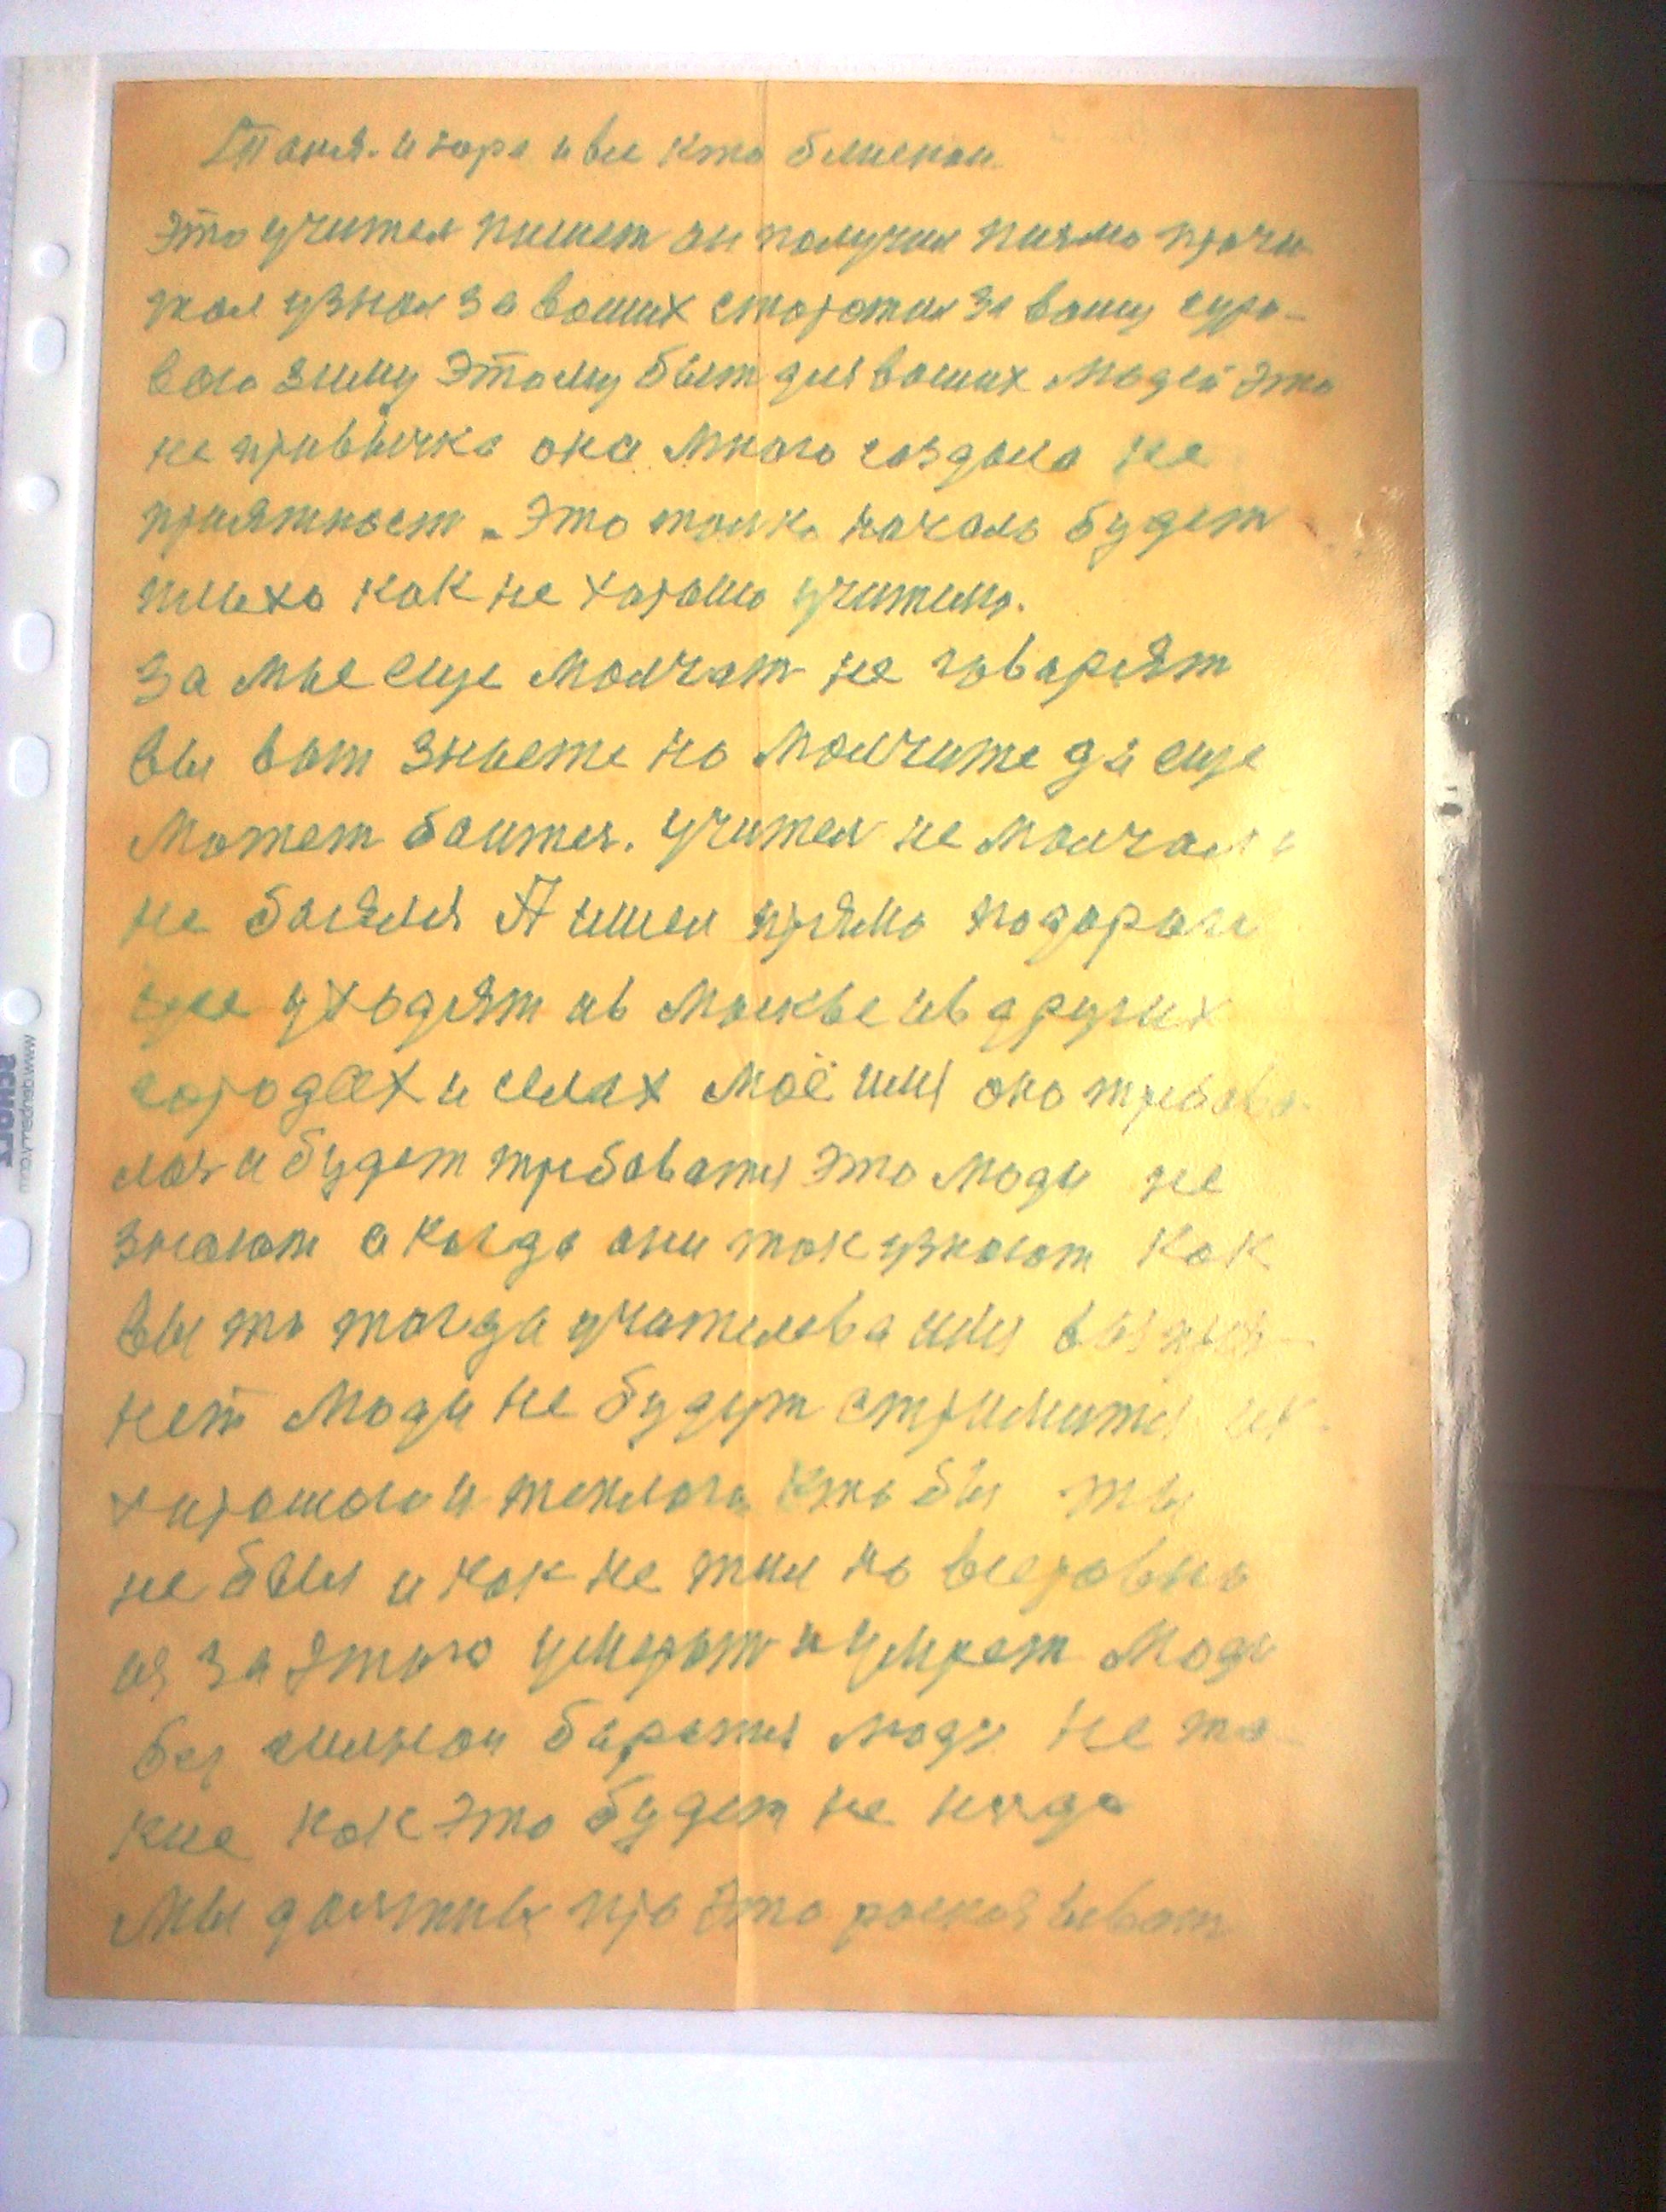 Таня. и юра и все кто близкои.
Это учител пишет он получил писмо прочи
тал узнал за ваших старотил за вашу суро-
вою зиму Этому быт для ваших людей это
не привычка она много создала не
приятност. Это толко начало будет
плохо как не хорошо учителю.
За мне еще молчат не говорят
вы вот знаете но молчите да еще
может боитес. учител не молчал и
не боялся А ишел прямо подороги
уходят ив Москве ив других
городах и селах моё имя оно требова
лос и будет требоватся это люди не
знают а когда они так узнают как
вы то тогда учителева имя
нет люди не будут стримится
хорошого и теплого кто бы ты
не был и как не жил но всеровно
из за этого умерат и умрет люди
без силнои боротся люди не та
кие как это будет не когда
мы должны про это расказыват